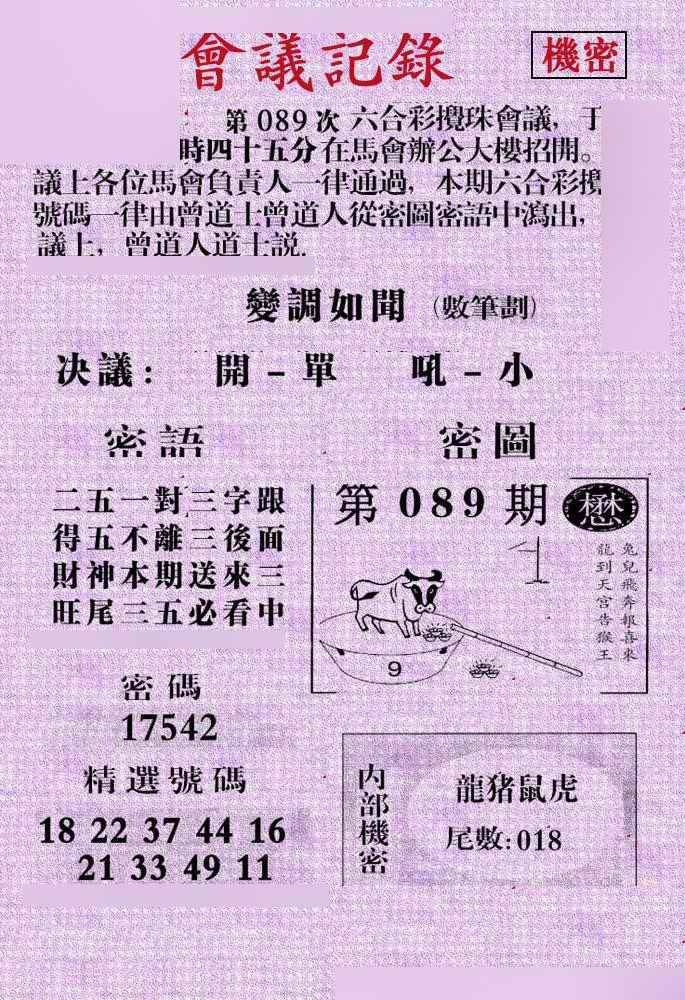 會議記錄
機密
第 089 次 六合彩攪珠會議，于
時四十五分在馬會辦公大樓招開。
議上各位馬會負責人一律通過，本期六合彩攪
號碼一律由曾道士曾道人從密圖密語中瀉出，
議上，曾道人道士説.
變調如聞（數筆劃）
决議： 開－單 吼－小
密語
二五一對三字跟
得五不離三後面
財神本期送來三
旺尾三五必看中
密圖
第 089 期 懋
兔兒飛奔報喜來
龍到天宮告猴王
9
密碼
17542
精選號碼
18 22 37 44 16
21 33 49 11
内部機密
龍猪鼠虎
尾數:018